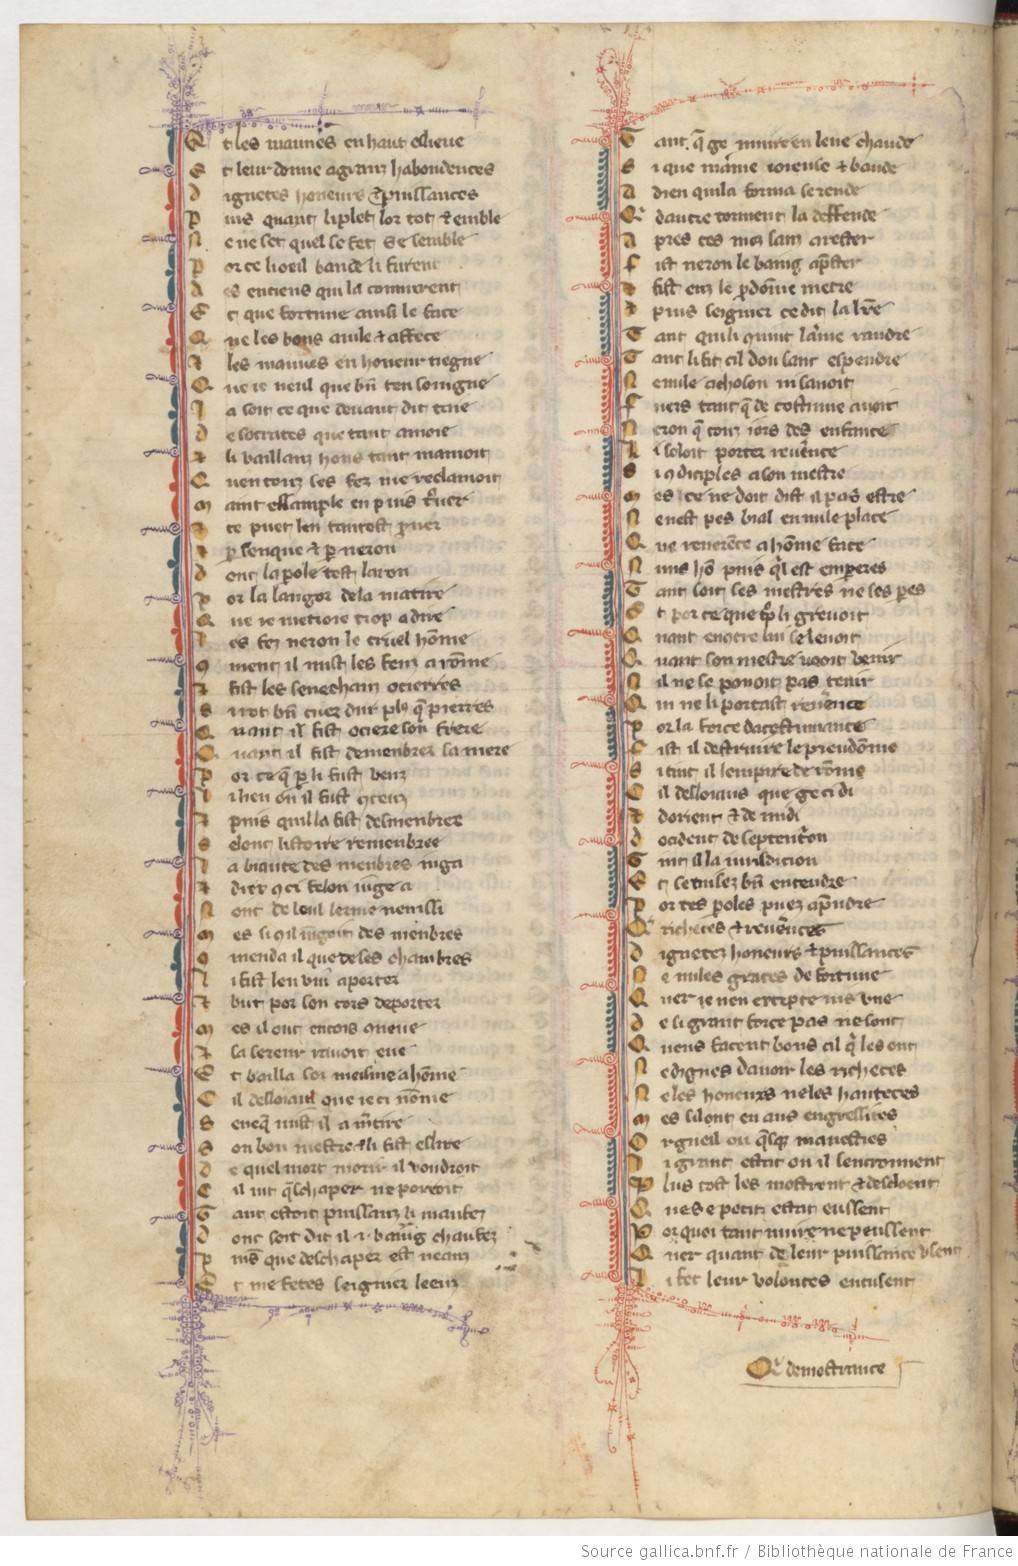 Et les mauues en haut elieue
Et leur donne a granz habondences
Dignetes honeurs & puissances
Puis quant li plet lor tot & emble
Ne ne set quel se fet se semble
Por ce li oeil bande li furent
Des enciens qui la connurent
Et que fortune ainsi le face
Que les bons auile & afface
Et les mauues en honeur tiegne
Que ie ueul que bn ten souigne
Ia soit ce que deuant dit taie
De socrates que tant amoie
Et li vaillanz hons tant mamoit
Quen touz ses fez me reclamoit
Maint essample en puis truer
Et ce puet len tantost prouer
Et p senque & p neron
Dont la pole test laron
Por la langor de la matire
Que ie metroie trop a dire
Les fez neron le cruel home
Coment il mist les feuz a rome
Et fist les senescham ocierres
Si rot bn cuer dur plus que pierres
Quant il fist ocierre son frere
Quant il fist demenbrer sa mere
Por ce que p li fust veuz
Li lieu ou il fust conceuz
Et puis quil la fist desmenbree
Selonc listoire remenbree
La biaute des menbres iuga
He dieux com ci felon iuge a
Onc de leul lerme nen issi
Mes si com il iugoit des menbres
Comenda il que de ses chambres
Li fist len vin aporter
Et but por son cors deporter
Mes il ont encois queue
Et sa sereur rauoit eue
Et bailla soi meisme a home
Cil desloiaus que ie ci nome
Seneque mist il a martire
Son bon mestre & li fist eslire
De quel mort morir il voudroit
Cil uit queschaper ne porroit
Tant estoit puissanz li maufez
Donc soit dit il .i. baing chaufez
Puis que deschaper est neanz
Et me fetes seignier leenz
Tant que ge muire en leue chaude
Et que mame ioieuse & baude
A dieu qui la forma se rende
Qui dautre torment la deffende
Apres ces moz sanz arester
Fist neron le baing aprester
Et fist enz le prdome metre
Et puis seignier ce dit la lre
Tant quili quint lame randre
Tant li fit cil dou sanc espendre
Ne nule achoison ni sauoit
Fuers tant que de costume auoit
Neron que touz iors des enfance
Li soloit porter reuerence
Si com diciples a son mestre
Mes ce ne doit dist il pas estre
Nenest pes bial en nule place
Que reuerence a home face
Nus hom puis quil est emperes
Tant soit ses mestres ne ses peres
Et por ce que trop li greuoit
Quant encontre lui se leuoit
Quant son mestre veoit venir
Nil ne se pouoit pas tenir
Quil ne li portast reuerence
Por la force dacostumance
Fist il destruire le preudome
Si tint il lempire de rome
Cil desloiaus que ge ci di
Et dorient & de midi
Docident de septentron
Tint il la iurisdicion
Et se mulez bn entendre
Por ces poles puez aprendre
Que richeces & reuerences
Dignetez honeurs & puissances
Ne nules graces de fortune
Quer ie nen excepte nis vne
De si grant force pas ne sont
Quens facent bons cil que les ont
Ne dignes dauoir les richeces
Ne les honeurs ne les hauteces
Mes sil ont en aus engrestites
Orgueil ou quelque mauesties
Li grant estat ou il sencronnent
Plus tost les mostrent & descloent
Que se petit estat eussent
Por quoi tant nuire ne peussent
Quer quant de leur puissance vsent
Li fet leur volontes encusent
Qui demostrance
Source gallica.bnf.fr / Bibliothèque nationale de France